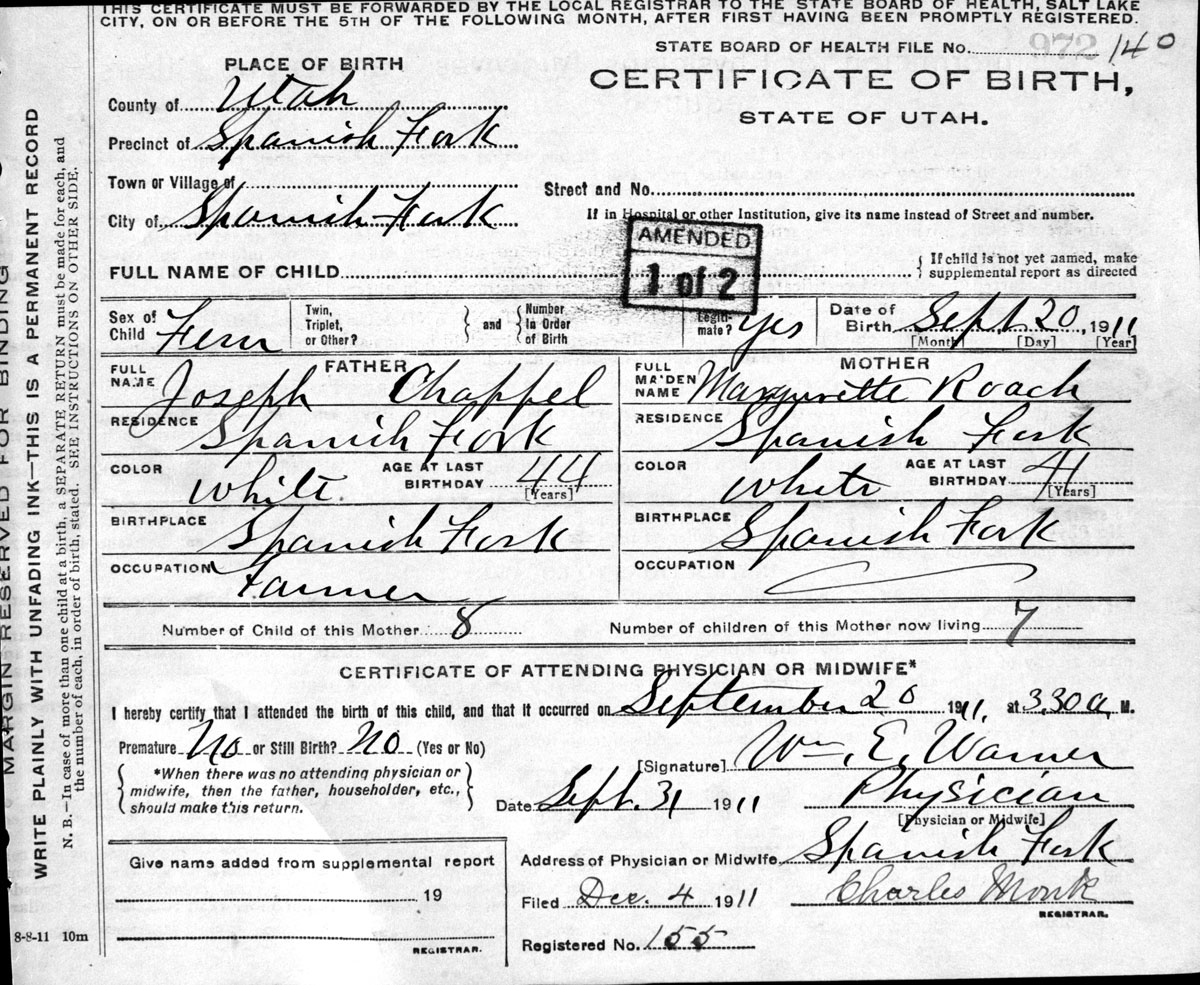 THIS CERTIFICATE MUST BE FORWARDED BY THE LOCAL REGISTRAR TO THE STATE BOARD OF HEALTH, SALT LAKE
CITY, ON OR BEFORE THE 5TH OF THE FOLLOWING MONTH, AFTER FIRST HAVING BEEN PROMPTLY REGISTERED.
STATE BOARD OF HEALTH FILE No. 972 140
PLACE OF BIRTH
CERTIFICATE OF BIRTH,
STATE OF UTAH.
County of Utah
Precinct of Spanish Fork
Town or Village of
Street and No.
City of Spanish Fork
If in Hospital or other Institution, give its name instead of Street and number.
AMENDED
1 of 2
FULL NAME OF CHILD
{ If child is not yet named, make
supplemental report as directed
Sex of Child Fem
Twin, Triplet, or Other?
and
Number In Order of Birth
Legiti-mate? Yes
Date of Birth Sept 20, 1911
[Month] [Day] [Year]
FATHER
FULL NAME Joseph Chappel
RESIDENCE Spanish Fork
COLOR White
AGE AT LAST BIRTHDAY 44
[Years]
BIRTHPLACE Spanish Fork
OCCUPATION Farmer
MOTHER
FULL MAIDEN NAME Margurette Roach
RESIDENCE Spanish Fork
COLOR White
AGE AT LAST BIRTHDAY 41
[Years]
BIRTHPLACE Spanish Fork
OCCUPATION
Number of Child of this Mother 8
Number of children of this Mother now living 7
CERTIFICATE OF ATTENDING PHYSICIAN OR MIDWIFE*
I hereby certify that I attended the birth of this child, and that it occurred on September 20 1911, at 3.30 a, M.
Premature No or Still Birth? No (Yes or No)
[Signature] Wm. E. Warner
*When there was no attending physician or
midwife, then the father, householder, etc.,
should make this return.
Date Sept. 31 1911
Physician
[Physician or Midwife]
Give name added from supplemental report
19
REGISTRAR.
Address of Physician or Midwife Spanish Fork
Filed Dec. 4 1911
Charles Monk
REGISTRAR.
Registered No. 155
8-8-11 10m
MARGIN RESERVED FOR BINDING
WRITE PLAINLY WITH UNFADING INK—THIS IS A PERMANENT RECORD
N. B.—In case of more than one child at a birth, a SEPARATE RETURN must be made for each, and
the number of each, in order of birth, stated. SEE INSTRUCTIONS ON OTHER SIDE.